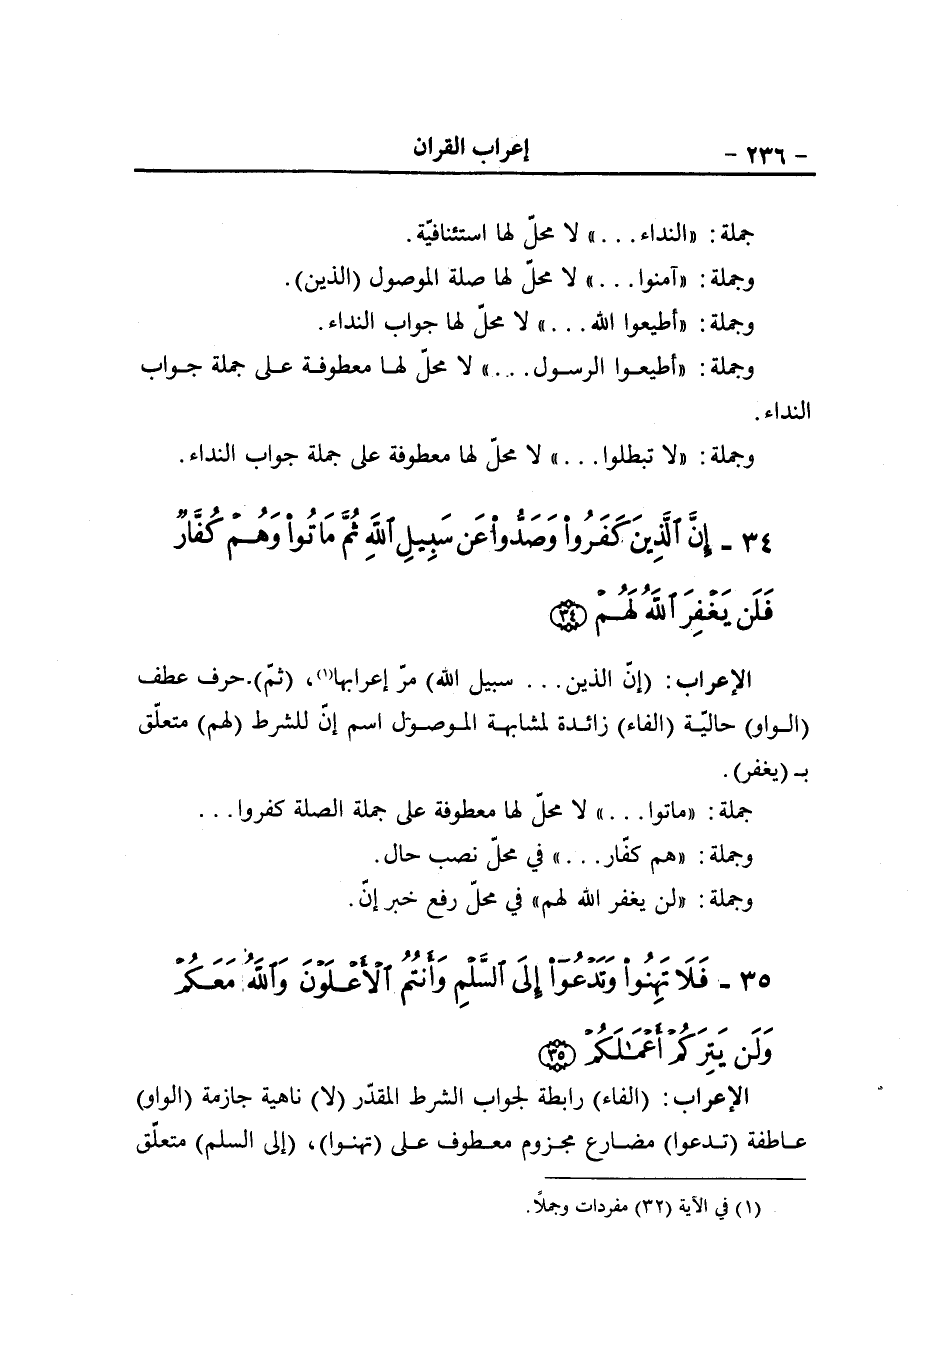 - ٢٣٦ - إعراب القران
جملة: «النداء...» لا محلّ لها استئنافيّة.
وجملة: «آمنوا...» لا محلّ لها صلة الموصول (الذين).
وجملة: «أطيعوا الله...» لا محلّ لها جواب النداء.
وجملة: «أطيعوا الرسول...» لا محلّ لها معطوفة على جملة جواب
النداء.
وجملة: «لا تبطلوا...» لا محلّ لها معطوفة على جملة جواب النداء.
٣٤ - إِنَّ ٱلَّذِينَ كَفَرُوا۟ وَصَدُّوا۟ عَن سَبِيلِ ٱللَّهِ ثُمَّ مَاتُوا۟ وَهُمْ كُفَّارٌ
فَلَن يَغْفِرَ ٱللَّهُ لَهُمْ ﴿٣٤﴾
الإعراب: (إنّ الذين... سبيل الله) مرّ إعرابها(١)، (ثمّ).حرف عطف
(الواو) حاليّة (الفاء) زائدة لمشابهة الموصول اسم إنّ للشرط (لهم) متعلّق
بـ (يغفر).
جملة: «ماتوا...» لا محلّ لها معطوفة على جملة الصلة كفروا...
وجملة: «هم كفّار...» في محلّ نصب حال.
وجملة: «لن يغفر الله لهم» في محلّ رفع خبر إنّ.
٣٥ - فَلَا تَهِنُوا۟ وَتَدْعُوٓا۟ إِلَى ٱلسَّلْمِ وَأَنتُمُ ٱلْأَعْلَوْنَ وَٱللَّهُ مَعَكُمْ
وَلَن يَتِرَكُمْ أَعْمَـٰلَكُمْ ﴿٣٥﴾
الإعراب: (الفاء) رابطة لجواب الشرط المقدّر (لا) ناهية جازمة (الواو)
عاطفة (تدعوا) مضارع مجزوم معطوف على (تهنوا)، (إلى السلم) متعلّق
(١) في الآية (٣٢) مفردات وجملاً.